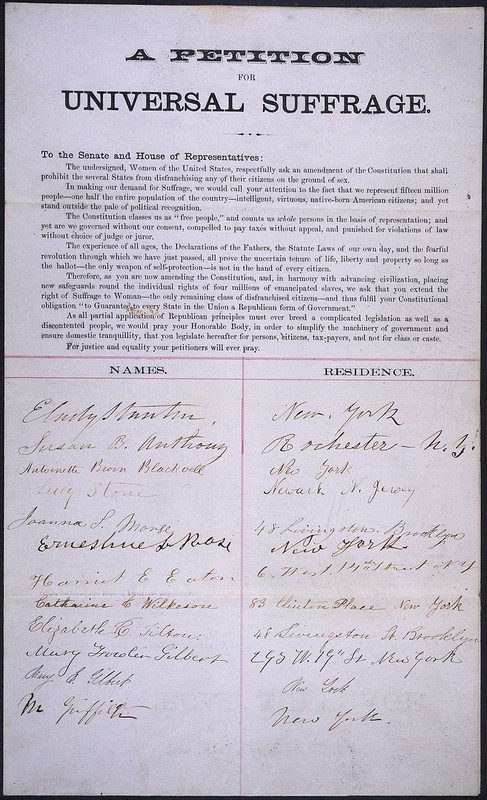 A PETITION
FOR
UNIVERSAL SUFFRAGE.
To the Senate and House of Representatives:
The undersigned, Women of the United States, respectfully ask an amendment of the Constitution that shall
prohibit the several States from disfranchising any of their citizens on the ground of sex.
In making our demand for Suffrage, we would call your attention to the fact that we represent fifteen million
people—one half the entire population of the country—intelligent, virtuous, native-born American citizens; and yet
stand outside the pale of political recognition.
The Constitution classes us as "free people," and counts us whole persons in the basis of representation; and
yet are we governed without our consent, compelled to pay taxes without appeal, and punished for violations of law
without choice of judge or juror.
The experience of all ages, the Declarations of the Fathers, the Statute Laws of our own day, and the fearful
revolution through which we have just passed, all prove the uncertain tenure of life, liberty and property so long as
the ballot—the only weapon of self-protection—is not in the hand of every citizen.
Therefore, as you are now amending the Constitution, and, in harmony with advancing civilization, placing
new safeguards round the individual rights of four millions of emancipated slaves, we ask that you extend the
right of Suffrage to Woman—the only remaining class of disfranchised citizens—and thus fulfil your Constitutional
obligation "to Guarantee to every State in the Union a Republican form of Government."
As all partial application of Republican principles must ever breed a complicated legislation as well as a
discontented people, we would pray your Honorable Body, in order to simplify the machinery of government and
ensure domestic tranquillity, that you legislate hereafter for persons, citizens, tax-payers, and not for class or caste.
For justice and equality your petitioners will ever pray.
NAMES. RESIDENCE.
E Cady Stanton, New York
Susan B. Anthony Rochester - N.Y.
Antoinette Brown Blackwell New York
Lucy Stone Newark N. Jersey
Joanna S. Morse 48 Livingston. Brooklyn
Ernestine L Rose New York
Harriet E Eaton 6. West. 14th Street N.Y
Catharine C Wilkeson 83 Clinton Place New York
Elizabeth R. Tilton. 48 Livingston St. Brooklyn
Mary Fowler Gilbert 293 W. 19" St New York
Mary E Gilbert New York
M Griffith New York.